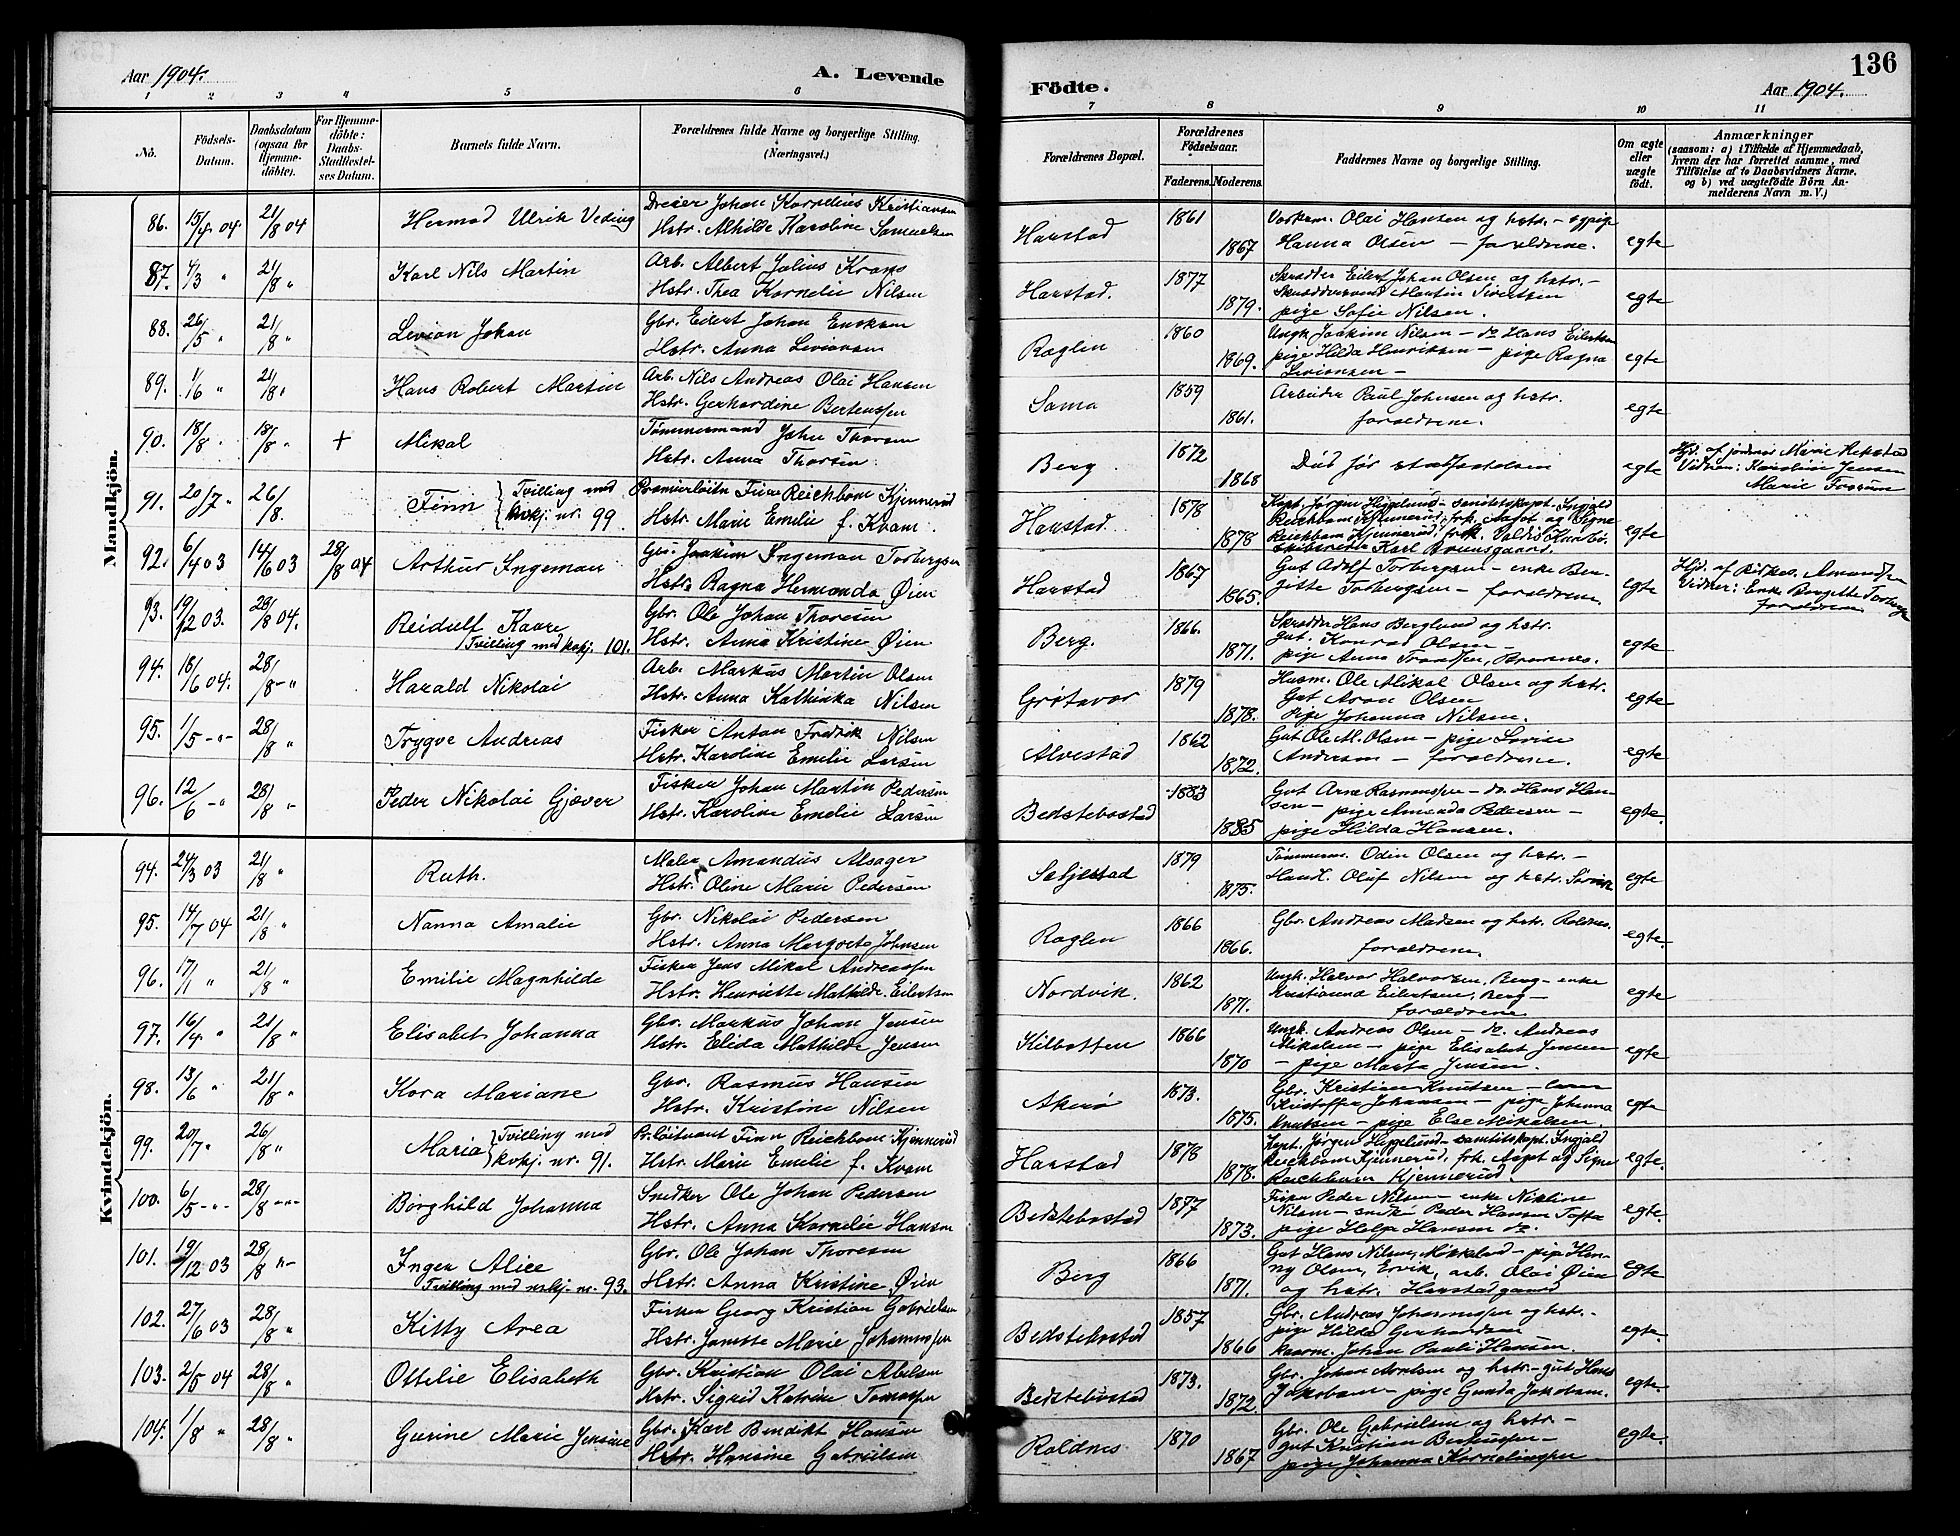 136
Aar 1904.
A. Levende
Födte.
Aar 1904.
1 2 3 4 5 6 7 8 9 10 11
No.
Födsels-Datum.
Daabsdatum (ogsaa for Hjemmedöbte).
For Hjemmedöbte: Daabs-Stadfæstelses Datum.
Barnets fulde Navn.
Forældrenes fulde Navne og borgerlige Stilling.
(Næringsvei.)
Forældrenes Bopæl.
Forældrenes Födselsaar.
Faderens. Moderens.
Faddernes Navne og borgerlige Stilling.
Om ægte eller uægte födt.
Anmærkninger
(saasom: a) i Tilfælde af Hjemmedaab, hvem der har forrettet samme, med Tilföielse af to Daabsvidners Navne, og b) ved uægtefödte Börn Anmelderens Navn m. V.)
Mandkjön.
86. 15/4 04 21/8 04 Hermod Ulrik Veding Dreier Johan Kornelius Kristiansen Harstad 1861 Olai Hansen og hstr. -
Hstr. Alhilde Karoline Samuelsen 1867 Hanna Olsen - forældrene. egte
87. 4/3 " 21/8 " Karl Nils Martin Arb. Albert Julius Kraps Harstad. 1877 Skrædder Eilert Johan Olsen og hstr. -
Hstr. Thea Kornelie Nilsen 1879. Martin Sivertsen egte
pige Sofie Nilsen.
88. 26/5 " 21/8 " Levion Johan Gbr. Eilert Johan Eriksen Raglen 1860 Ungk. Joakim Nilsen - do Hans Eilertsen
Hstr. Anna Levionsen 1869. pige Hilda Henriksen - pige Ragna egte
Levionsen -
89. 1/6 " 21/8 " Hans Robert Martin Arb. Nils Andreas Olai Hansen Sama 1859 Arbeider Paul Johnsen og hstr.
Hstr. Gerhardine Berteussen 1861. forældrene. egte
90. 18/8 " 18/8 " + Mikal Tømmermand John Thorsen Berg 1872 Død før stadfæstelsen egte Hjd. af jordmor Marie Rekstad
Hstr. Anna Thorsen 1868 Vidner: Karoline Jensen
Marie Fossum
91. 20/7 " 26/8. Finn Tvilling med kvkj. nr. 99 Premierløitn. Finn Reichborn Kjennerud Harstad. 1878 Kapt. Jørgen Hegglund - sanitetskapt. Ingjald
Hstr. Marie Emilie f. Kvam. 1878 Reichborn Kjennerud, frk. Aagot og Signe egte
Reichborn Kjennerud, frk. Valdis
Karl Bruunsgaard.
92. 6/4 03 14/6 03 28/8 04 Arthur Ingeman Joakim Ingeman Torbergsen Harstad 1867 Gut Adolf Torbergsen - enke Ber-
Hstr. Ragna Hermanda Øien 1865. gitte Torbergsen - forældrene. egte Hjd. af Amundsen
Vidner: Enke Bergitte Torbergs
forældrene
93. 19/12 03. 28/8 04. Reidulf Kaare Gbr. Ole Johan Thoresen Berg. 1866. Skrædder Hans Berglund og hstr.
Tvilling med kvkj. 101. Hstr. Anna Kristine Øien 1871. gut. Konrad Olsen - egte
pige Anna
94. 18/6 04. 28/8 - " Harald Nikolai Arb. Markus Martin Olsen Grøtavær 1879 Husm. Ole Mikal Olsen og hstr.
Hstr. Anna Kathinka Nilsen 1878. Gut Aron Olsen egte
Pige Johanna Nilsen.
95. 1/5 - " - 28/8 " Trygve Andreas Fisker Anton Fredrik Nilsen Alvestad 1862 Gut Ole M. Olsen - pige Lovise
Hstr. Karoline Emelie Larsen 1872. Andersen - forældrene. egte
96. 12/6 - " 28/8 " - Peder Nikolai Gjæver Fisker Johan Martin Pedersen Bedstebostad 1883 Gut Arne Rasmussen - do. Hans Han-
Hstr. Karoline Emelie Larsen 1885 sen - pige Amanda Pedersen - egte.
pige Hilda Hansen.
Kvindekjön.
94. 24/3 03 21/8 " Ruth. Maler Amandus Alsager Sætjestad 1879 Tømmerm. Odin Olsen og hstr. -
Hstr. Oline Marie Pedersen 1875. Handl. Oluf Nilsen og hstr. egte
95. 14/7 04 21/8 " Nanna Amalie Gbr. Nikolai Pedersen Raglen 1866 Gbr. Andreas Madsen og hstr. Roldnes.
Hstr. Anna Margrete Johnsen 1866. forældrene. egte
96. 17/1 " 21/8 " Emilie Magnhilde Fisker Jens Mikal Andreassen Nordvik. 1862 Ungk. Halvor Halvorsen, Berg - enke
Hstr. Henriette Mathilde Eilertsen 1871. Kristianna Eilertsen, Berg - egte
forældrene
97. 16/4 " 21/8 " Elisabet Johanna Gbr. Markus Johan Jensen Kilbotten 1866 Ungk. Andreas Olsen - do. Andreas
Hstr. Elida Mathilde Jensen 1870 Mikalsen - pige Elisabet Jensen egte
- pige Marta Jensen.
98. 13/6 " 21/8 " Kora Mariane Gbr. Rasmus Hansen Akerø 1873. Gbr. Kristian Knutsen -
Hstr. Kristine Nilsen 1875. Kristoffer Johansen - pige Johanna egte
Knutsen - pige Else Mikalsen.
99. 20/7 " 26/8 " Maria Tvilling med kvkj. nr. 91. Pr.løitnant Finn Reichborn Kjennerud Harstad 1878 Kapt. Jørgen Hegglund - sanitetskapt. Ingjald
Hstr. Marie Emilie f. Kvam 1878. Reichborn Kjennerud, frk. Aagot og Signe egte.
Reichborn Kjennerud.
100. 6/5 - " - 28/8 " - " - Borghild Johanna Snedker Ole Johan Pedersen Bedstebostad 1877 Fisker Peder Nilsen - enke Nikline
Hstr. Anna Kornelie Hansen 1873. Nilsen - Peder Hansen Tofta egte.
pige Helga Hansen do.
101. 19/12 03 28/8 " - Inger Alice Gbr. Ole Johan Thoresen Berg 1866 Gut Hans Nilsen, Møkkeland - pige Hen-
Tvilling med mkj. nr. 93. Hstr. Anna Kristine Øien 1871. ny Olsen, Ervik, arb. Olai Øien egte
og hstr. Harstadgaard
102. 27/6 03 28/8 " Kitty Area Fisker Georg Kristian Gabrielsen Bedstebostad 1857 Gbr. Andreas Johannessen og hstr. -
Hstr. Janette Marie Johannessen 1866 pige Hilda Gerhardsen egte.
Johan Pauli Hansen.
103. 2/5 04 28/8 " Ottelie Elisabeth Gbr. Kristian Olai Abelsen Bedstebostad 1873. Gbr. Johan Arntsen og hstr. - gut Hans
Hstr. Sigrid Katrine Tomassen 1872. Jakobsen - pige Gunda Jakobsen. egte.
104. 1/8 " 28/8 " Gurine Marie Jensine Gbr. Karl Bendikt Hansen Roldnes 1870 Gbr. Ole Gabrielsen og hstr. -
Hstr. Hansine Gabrielsen 1867 gut Kristian Berteussen - egte.
pige Johanna Korneliussen